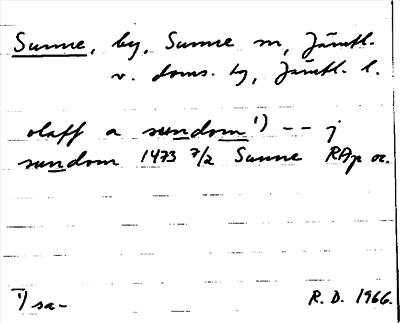 Sunne, by, Sunne sn, Jämtl.
v. doms. tg, Jämtl. l.
olaff a sundom ¹) -- j
sundom 1473 7/2 Sunne RAp or.
¹) sa-
R. D. 1966.